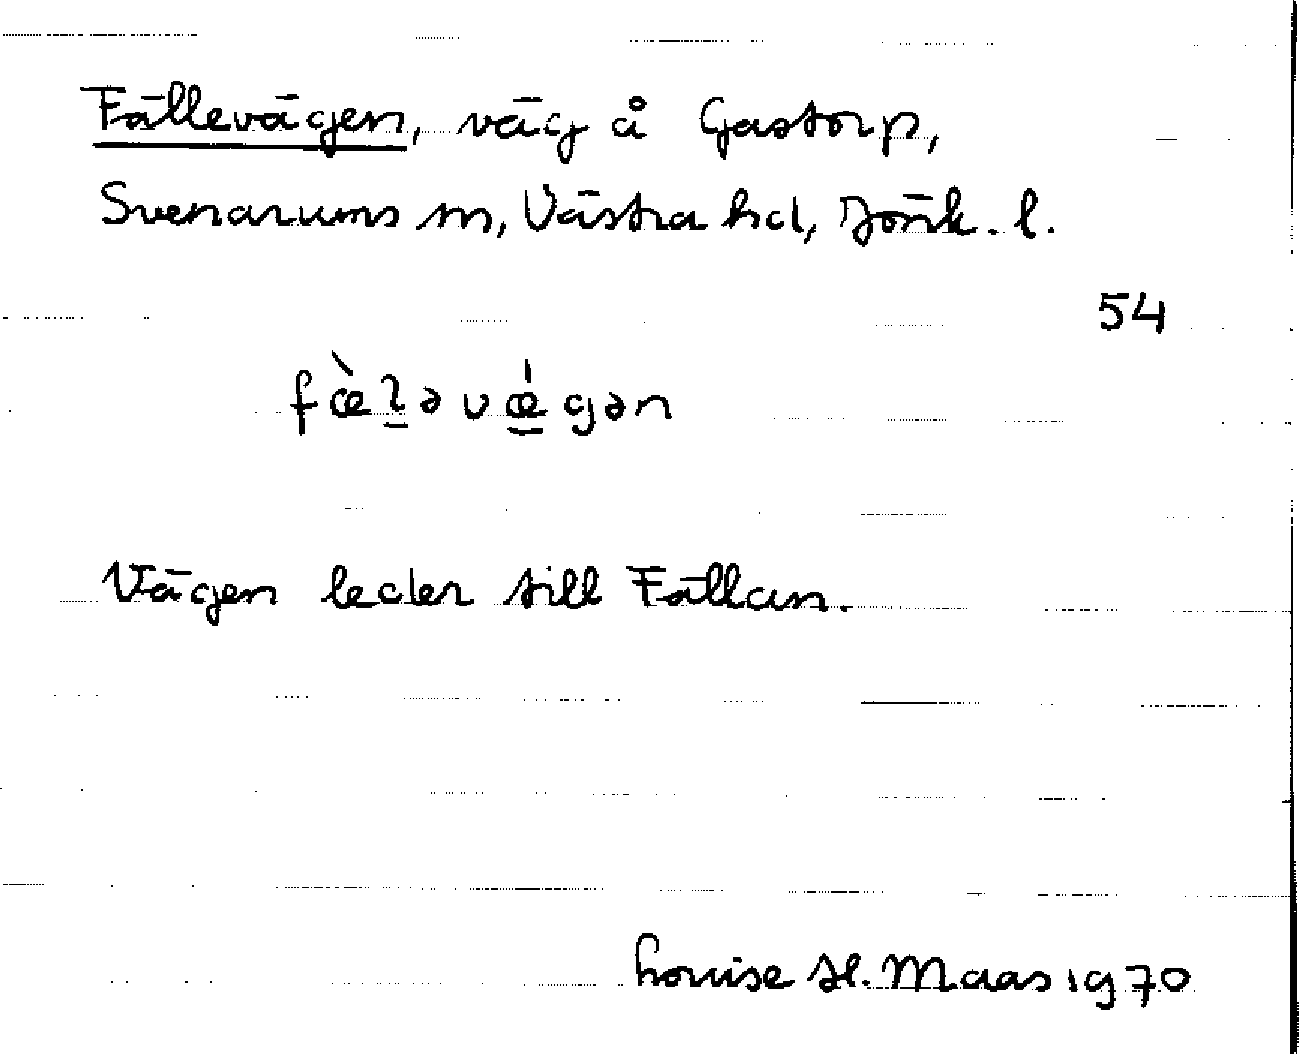 Fällevägen, väg å Gastorp,
Svenarums sn, Västra hd, Jönk. l.
54
fœ̀l̠əvœ̠́gən
Vägen leder till Fällan.
Louise St. Maas 1970